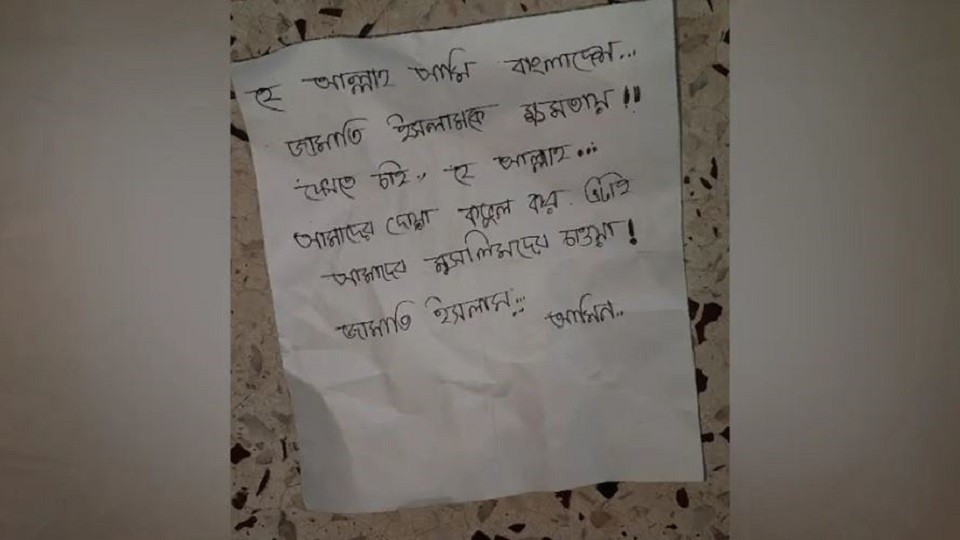 হে আল্লাহ আমি বাংলাদেশে...
জামাতি ইসলামকে ক্ষমতায় !!
দেখতে চাই.. হে আল্লাহ...
আমাদের দোয়া কবুল কর. এটাই
আমাদের মুসলিমদের চাওয়া!
জামাতি ইসলাম...
আমিন..